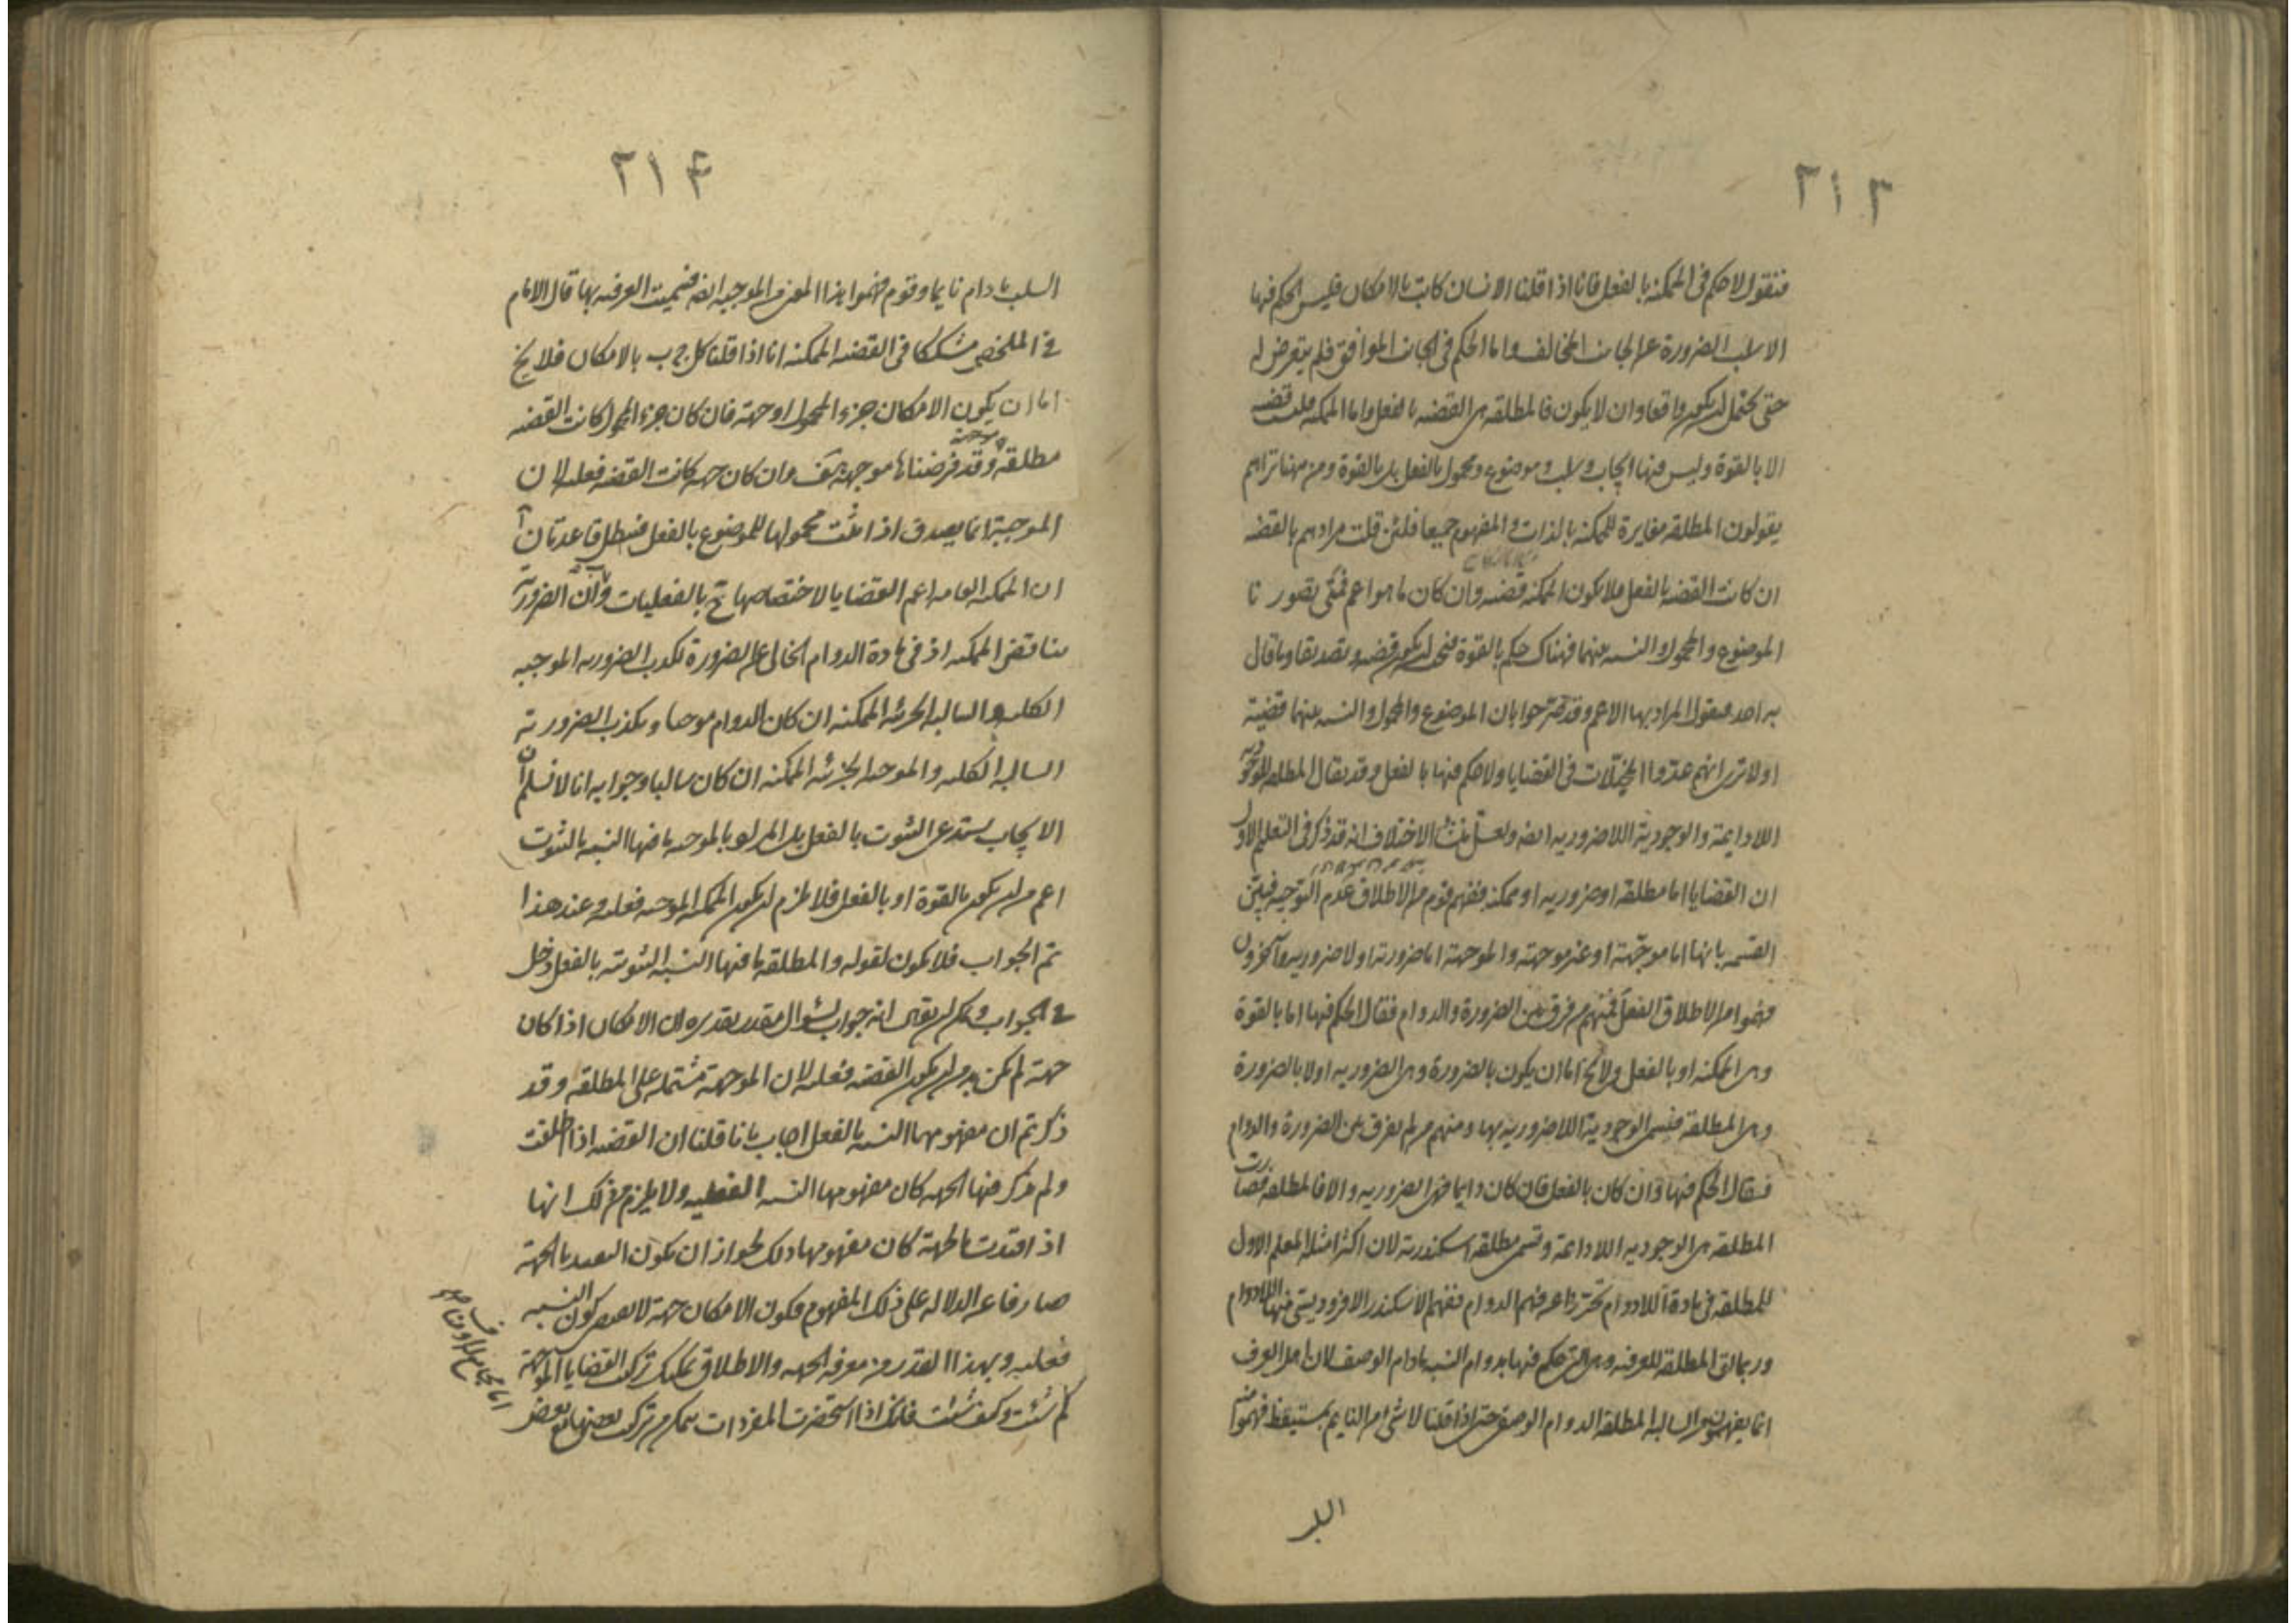 ٢١٣
فنقول لا حكم فى الممكنه بالفعل فانا اذا قلنا الانسان كاتب بالامكان فليس الحكم فيها
الا سلب الضرورة عن الجانب المخالف واما الحكم فى الجانب الموافق فلم يتعرض له
حتى يحتمل ان يكون واقعا وان لا يكون فالمطلقه هى القضيه بالفعل واما الممكنه فليست قضيه
الا بالقوة وليس فيها ايجاب وسلب وموضوع ومحمول بالفعل بل بالقوة ومن ههنا تراهم
يقولون المطلقه مغايرة للممكنه بالذات والمفهوم جميعا فلئن قلت مرادهم بالقضيه
ان كانت القضيه بالفعل فلا يكون الممكنه قضيه وان كان ما هو اعم فمتى تصور نا
الموضوع والمحمول والنسبه بينهما فهناك حكم بالقوة فيجب ان يكون قضيه وتصديقا وما قال
به احد فنقول المراد بها الاعم وقد صرحوا بان الموضوع والمحمول والنسبه بينهما قضيته
اولا ترى انهم عدوا المخيلات فى القضايا ولا حكم فيها بالفعل وقد يقال المطلقه للوجوديه
اللادايمة والوجودية اللاضروريه ايضه ولعل منشأ الاختلاف انه قد ذكر فى التعليم الاول
ان القضايا اما مطلقه او ضروريه او ممكنه ففهم قوم من الاطلاق عدم التوجيه فبين
القسمه بانها اما موجهة او غير موجهته والموجهة اما ضرورته او لا ضروريه وآخرون
فهموا من الاطلاق الفعل فمنهم من فرق بين الضرورة والدوام فقال الحكم فيها اما بالقوة
وهى الممكنه او بالفعل ولا يخ اما ان يكون بالضرورة وهى الضروريه او لا بالضرورة
وهى المطلقه فيسمى الوجودية اللاضروريه بها ومنهم من لم يفرق بين الضرورة والدوام
فقال الحكم فيها ان كان بالفعل فان كان دايما فهى الضروريه والا فالمطلقه فصارت
المطلقه هى الوجوديه اللادائمة وتسمى مطلقه اسكندرية لان اكثر امثلة المعلم الاول
للمطلقه فى مادة اللادوام تحرزا عن فهم الدوام ففهم الاسكندر الافروديسى منها اللادوام
وربما لق المطلقه للعرفيه وهى التى حكم فيها بدوام النسبه مادام الوصف لان اهل العرف
انما يفهمون من السالبه المطلقه الدوام الوصفى حتى اذا قلنا لا شئ من النايم بمستيقظ فهموا منه
السلب
٢١۴
السلب مادام نايما وقوم فهموا هذا المعنى من الموجبه ايضه فسميت العرفيه بها قال الامام
فى الملخص مشككا فى القضيه الممكنه انا اذا قلنا كل ج ب بالامكان فلا يخ
اما ان يكون الامكان جزء المحمول او جهة فان كان جزء المحمول كانت القضيه
مطلقه وقد فرضناها موجهة هف وان كان جهه كانت القضيه فعليه لان
الموجبة انما يصدق اذا ثبت محمولها للموضوع بالفعل فتبطل قاعدتان آ
ان الممكنه العامه اعم القضايا لاختصاصها ح بالفعليات ب وان الضرورية
تناقض الممكنه اذ فى مادة الدوام الخالى عن الضرورة تكذب الضروريه الموجبه
الكليه والسالبه الجزئيه الممكنه ان كان الدوام موجبا ويكذب الضرورته
السالبه الكليه والموجبه الجزئيه الممكنه ان كان سالبا وجوابه انا لا نسلم ان
الايجاب يستدعى الثبوت بالفعل بل المراد بالموجبه ما فيها النسبه بالثبوت
اعم من ان يكون بالقوة او بالفعل فلا يلزم ان يكون الممكنه الموجبه فعليه وعند هذا
تم الجواب فلا يكون لقوله والمطلقه ما فيها النسبه الثبوتيه بالفعل دخل
فى الجواب ويمكن ان يقال انه جواب لسؤال مقدر تقديره ان الامكان اذا كان
جهة لم يكن بد من ان يكون القضيه فعليه لان الموجهة مشتمله على المطلقه وقد
ذكرتم ان مفهومها النسبه بالفعل اجاب بانا قلنا ان القضيه اذا اطلقت
ولم يذكر فيها الجهه كان مفهومها النسبه الفعليه ولا يلزم من ذلك انها
اذا قيدت بالجهة كان مفهومها ذلك لجواز ان يكون التقييد بالجهة
صارفا عن الدلالة على ذلك المفهوم فكون الامكان جهة لا يقتضى كون النسبه
فعليه وبهذا القدر من معرفه الجهه والاطلاق يمكنك تركيب القضايا الموجهة
كم شئت وكيف شئت فانك اذا استحضرت المفردات تمكن من تركيب بعضها مع بعض